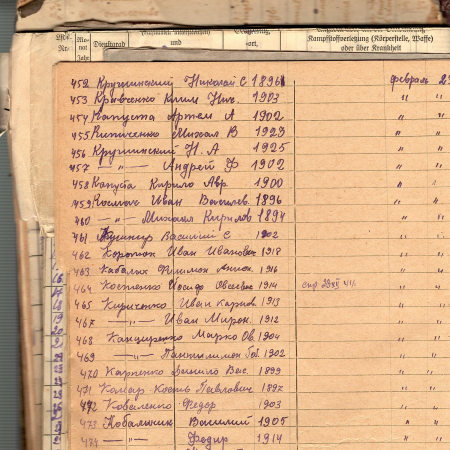 Lfde. Nr.
Mo-
nat
Jahr
Dienstgrad
und
ort,
Kampfstoffverletzung (Körperstelle, Waffe)
oder über Krankheit
452 Крушинский Николай С 1896 февраль 2
453 Кравченко Клим Ник. 1903 " "
454 Капуста Артем А 1902 " "
455 Михал В 1923 " "
456 Крушинский Н. А 1925 " "
457 —"— Андрей Ф 1902 " "
458 Капуста Кирило Авр. 1900 " "
459 Иван Васильев. 1896 " "
460 —"— Михаил Кирилов 1894 " "
461 Василий С 1902 " "
462 Коротюк Иван Иванович 1918 " "
463 1916 " "
464 Костенко Овсеевич 1914 " "
465 Кириченко Иван Карпов. 1913 " "
467 —"— Иван Мирон. 1912 " "
468 Марко Ов. 1904 " "
469 —"— Пантилимон 1902 " "
470 Карпенко Данило Вас. 1899 " "
471 Комар Кость Павлович 1897 " "
472 Коваленко Федор 1903 " "
473 Ковальчик Василий 1905 " "
474 —"— Федир 1914 " "